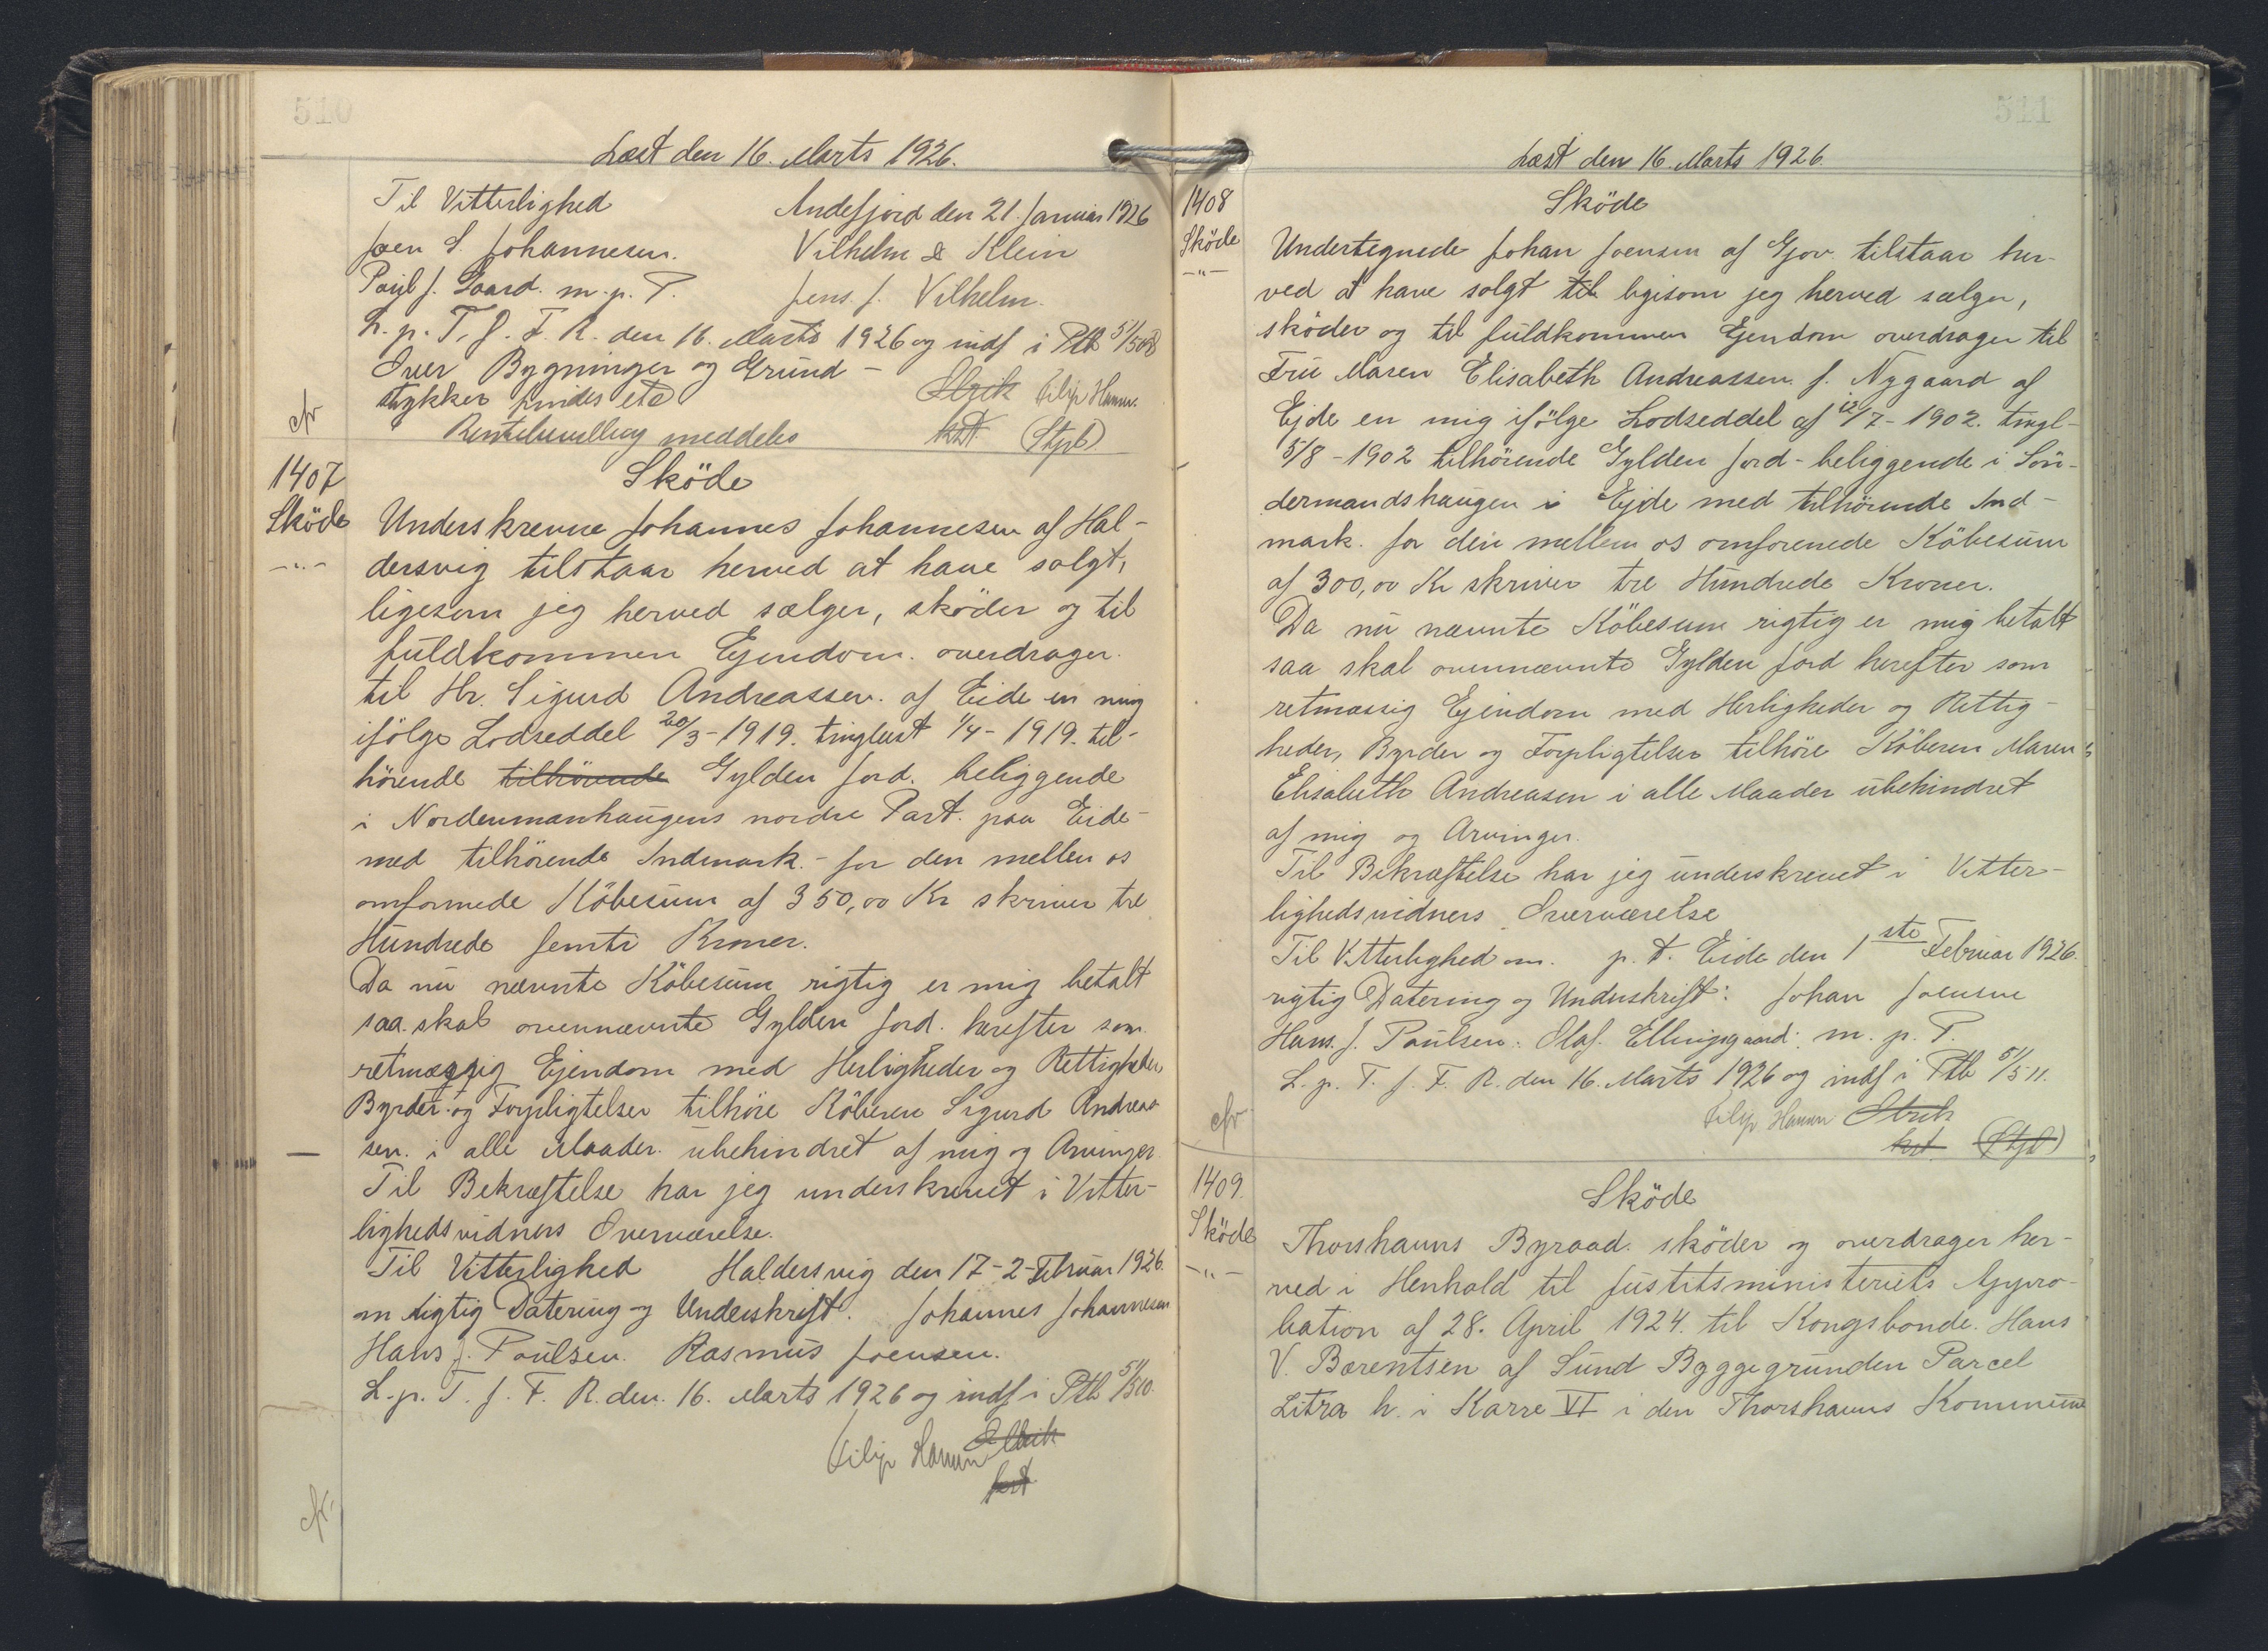 510
Læst den 16. Marts 1926.
Til Vitterlighed Andefjord den 21. Januar 1926
Joen S. Johannesen. Vilhelm & Klein
Poul J. Gaard. m. p. T. Jens. J. Vilhelm.
L. p. T. f. F. R. den 16. Marts 1926 og indf i Ptb 51/508
Over Bygninger og Grund-
stykker findes etc Filip Hamm.
meddeles (Stpl)
cfr
1407
Sköde
-"-
Sköde
Underskrevne Johannes Johannesen af Hal-
dersvig tilstaar herved at have solgt,
ligesom jeg herved sælger, sköder og til
fuldkommen Ejendom. overdrager.
til Hr. Sigurd Andreassen. af Eide en mig
ifölge Lodseddel 20/3-1919. tinglæst 1/4-1919. til-
hörende tilhörende Gylden Jord. beliggende
i Nordenmanhaugens nordre Part. paa Eide-
med tilhörende Indmark.- for den mellem os
omforenede Köbesum af 350,00 Kr skriver tre
Hundrede femti Kroner.
Da nu nævnte Köbesum rigtig er mig betalt
saa. skal ovennævnte Gylden Jord. herefter som.
retmæssig Ejendom med Herligheder og Rettigheder,
Byrder. og Forpligtelser tilhöre Köberen Sigurd Andreas-
sen. i alle Maader. ubehindret af mig og Arvinger
Til Bekræftelse har jeg underskrevet i Vitter-
lighedsvidners Overværelse.
Til Vitterlighed Haldersvig den 17-2-Februar 1926.
om rigtig Datering og Underskrift. Johannes Johannesen
Hans J. Poulsen. Rasmus Joensen.
L. p. T. f. F. R. den. 16. Marts 1926 og indf i Ptb 51/510.
Filip Hamm
cfr.
511
Læst den 16. Marts 1926.
1408
Sköde
-"-
Sköde
Undertegnede Johan Joensen af Gjov. tilstaar her-
ved at have solgt til ligesom jeg herved sælger,
sköder og til fuldkommen Ejendom overdrager til
Fru Maren Elisabeth Andreassen. f. Nygaard af
Ejde en mig ifölge Lodseddel af 12/7-1902. tingl-
5/8-1902 tilhörende Gylden Jord- beliggende i Sön-
dermandshaugen i Ejde med tilhörende Ind-
mark. for den mellem os omforenede Köbesum
af 300,00 Kr skriver tre Hundrede Kroner.
Da nu nævnte Köbesum rigtig er mig betalt
saa skal ovennævnte Gylden Jord herefter som
retmæssig Ejendom med Herligheder og Rettig-
heder, Byrder og Forpligtelser tilhöre Köberen Maren
Elisabeth Andreasen i alle Maader ubehindret
af mig og Arvinger.
Til Bekræftelse har jeg underskrevet i Vitter-
lighedsvidners Overværelse
Til Vitterlighed om. p. t. Eide den 1ste Februar 1926.
rigtig Datering og Underskrift: Johan Joensen
Hans. J. Poulsen. Olaf. Ellingsgaard. m. p. T.
L. p. T. f. F. R. den 16. Marts 1926 og indf i Ptb 51/511.
Filip Hamm
cfr (Stpl)
1409.
Sköde
-"-
Sköde
Thorshavns Byraad. sköder og overdrager her-
ved i Henhold til Justitsministeriets Appro-
bation af 28. April 1924. til Kongsbonde. Hans
V. Bærentsen af Sund Byggegrunden Parcel
Litra h. i Karre VI i den Thorshavns Kommune